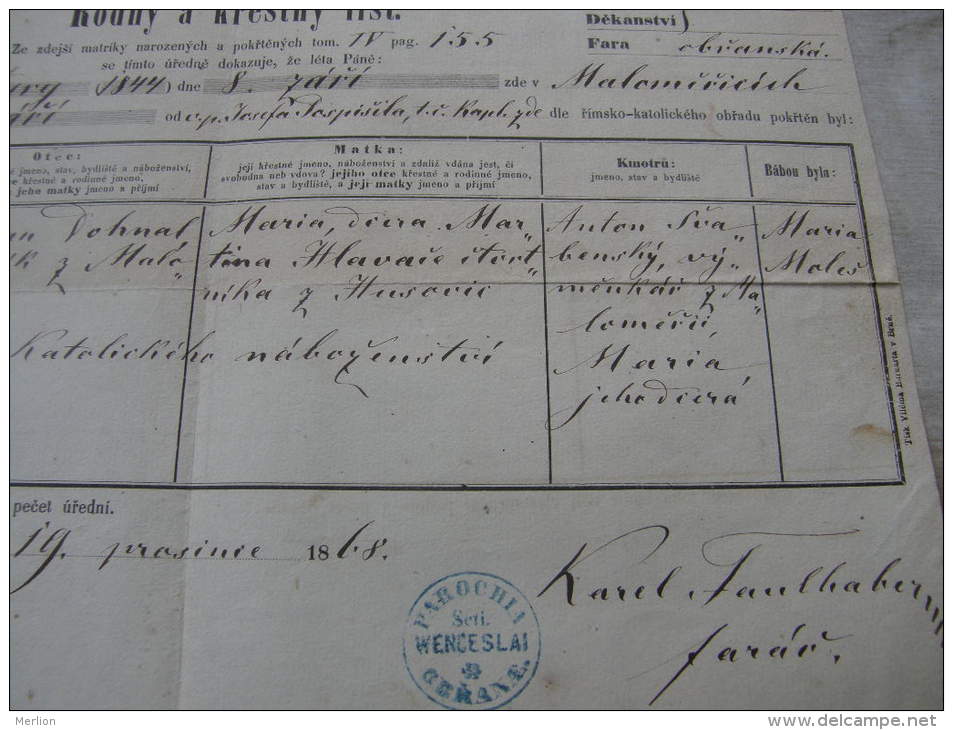 Rodný a křestný list.
Děkanství
Ze zdejší matriky narozených a pokřtěných tom. IV pag. 155
Fara obřanská.
se tímto úředně dokazuje, že léta Páně:
1844) dne 8. září zde v Maloměřicích
od v.p. Josefa Pospíšila, t.č. Kapl. zde dle římsko-katolického obřadu pokřtěn byl:
Otec:
jméno, stav, bydliště a náboženství,
křestné a rodinné jmeno,
jeho matky jmeno a příjmí
Matka:
její křestné jmeno, náboženství a zdaliž vdána jest, či
svobodna neb vdova? jejího otce křestné a rodinné jmeno,
stav a bydliště, a její matky jmeno a příjmí
Kmotrů:
jmeno, stav a bydliště
Bábou byla:
Dohnal
z Malo„
Maria, dcera Mar„
tina Hlavače čtvrt„
níka z Husovic
Anton Šva„
benský, vý„
měnkář z Ma„
loměřic,
Maria
jeho dcera
Maria
Moleš
Katolického náboženství
Tisk Viléma Burkarta v Brně.
pečet úřední.
19. prosince 1868.
Karel Faulhaber
farář.
PAROCHIA
Scti.
WENCESLAI
OBŘANÆ.
Merlion
www.delcampe.net